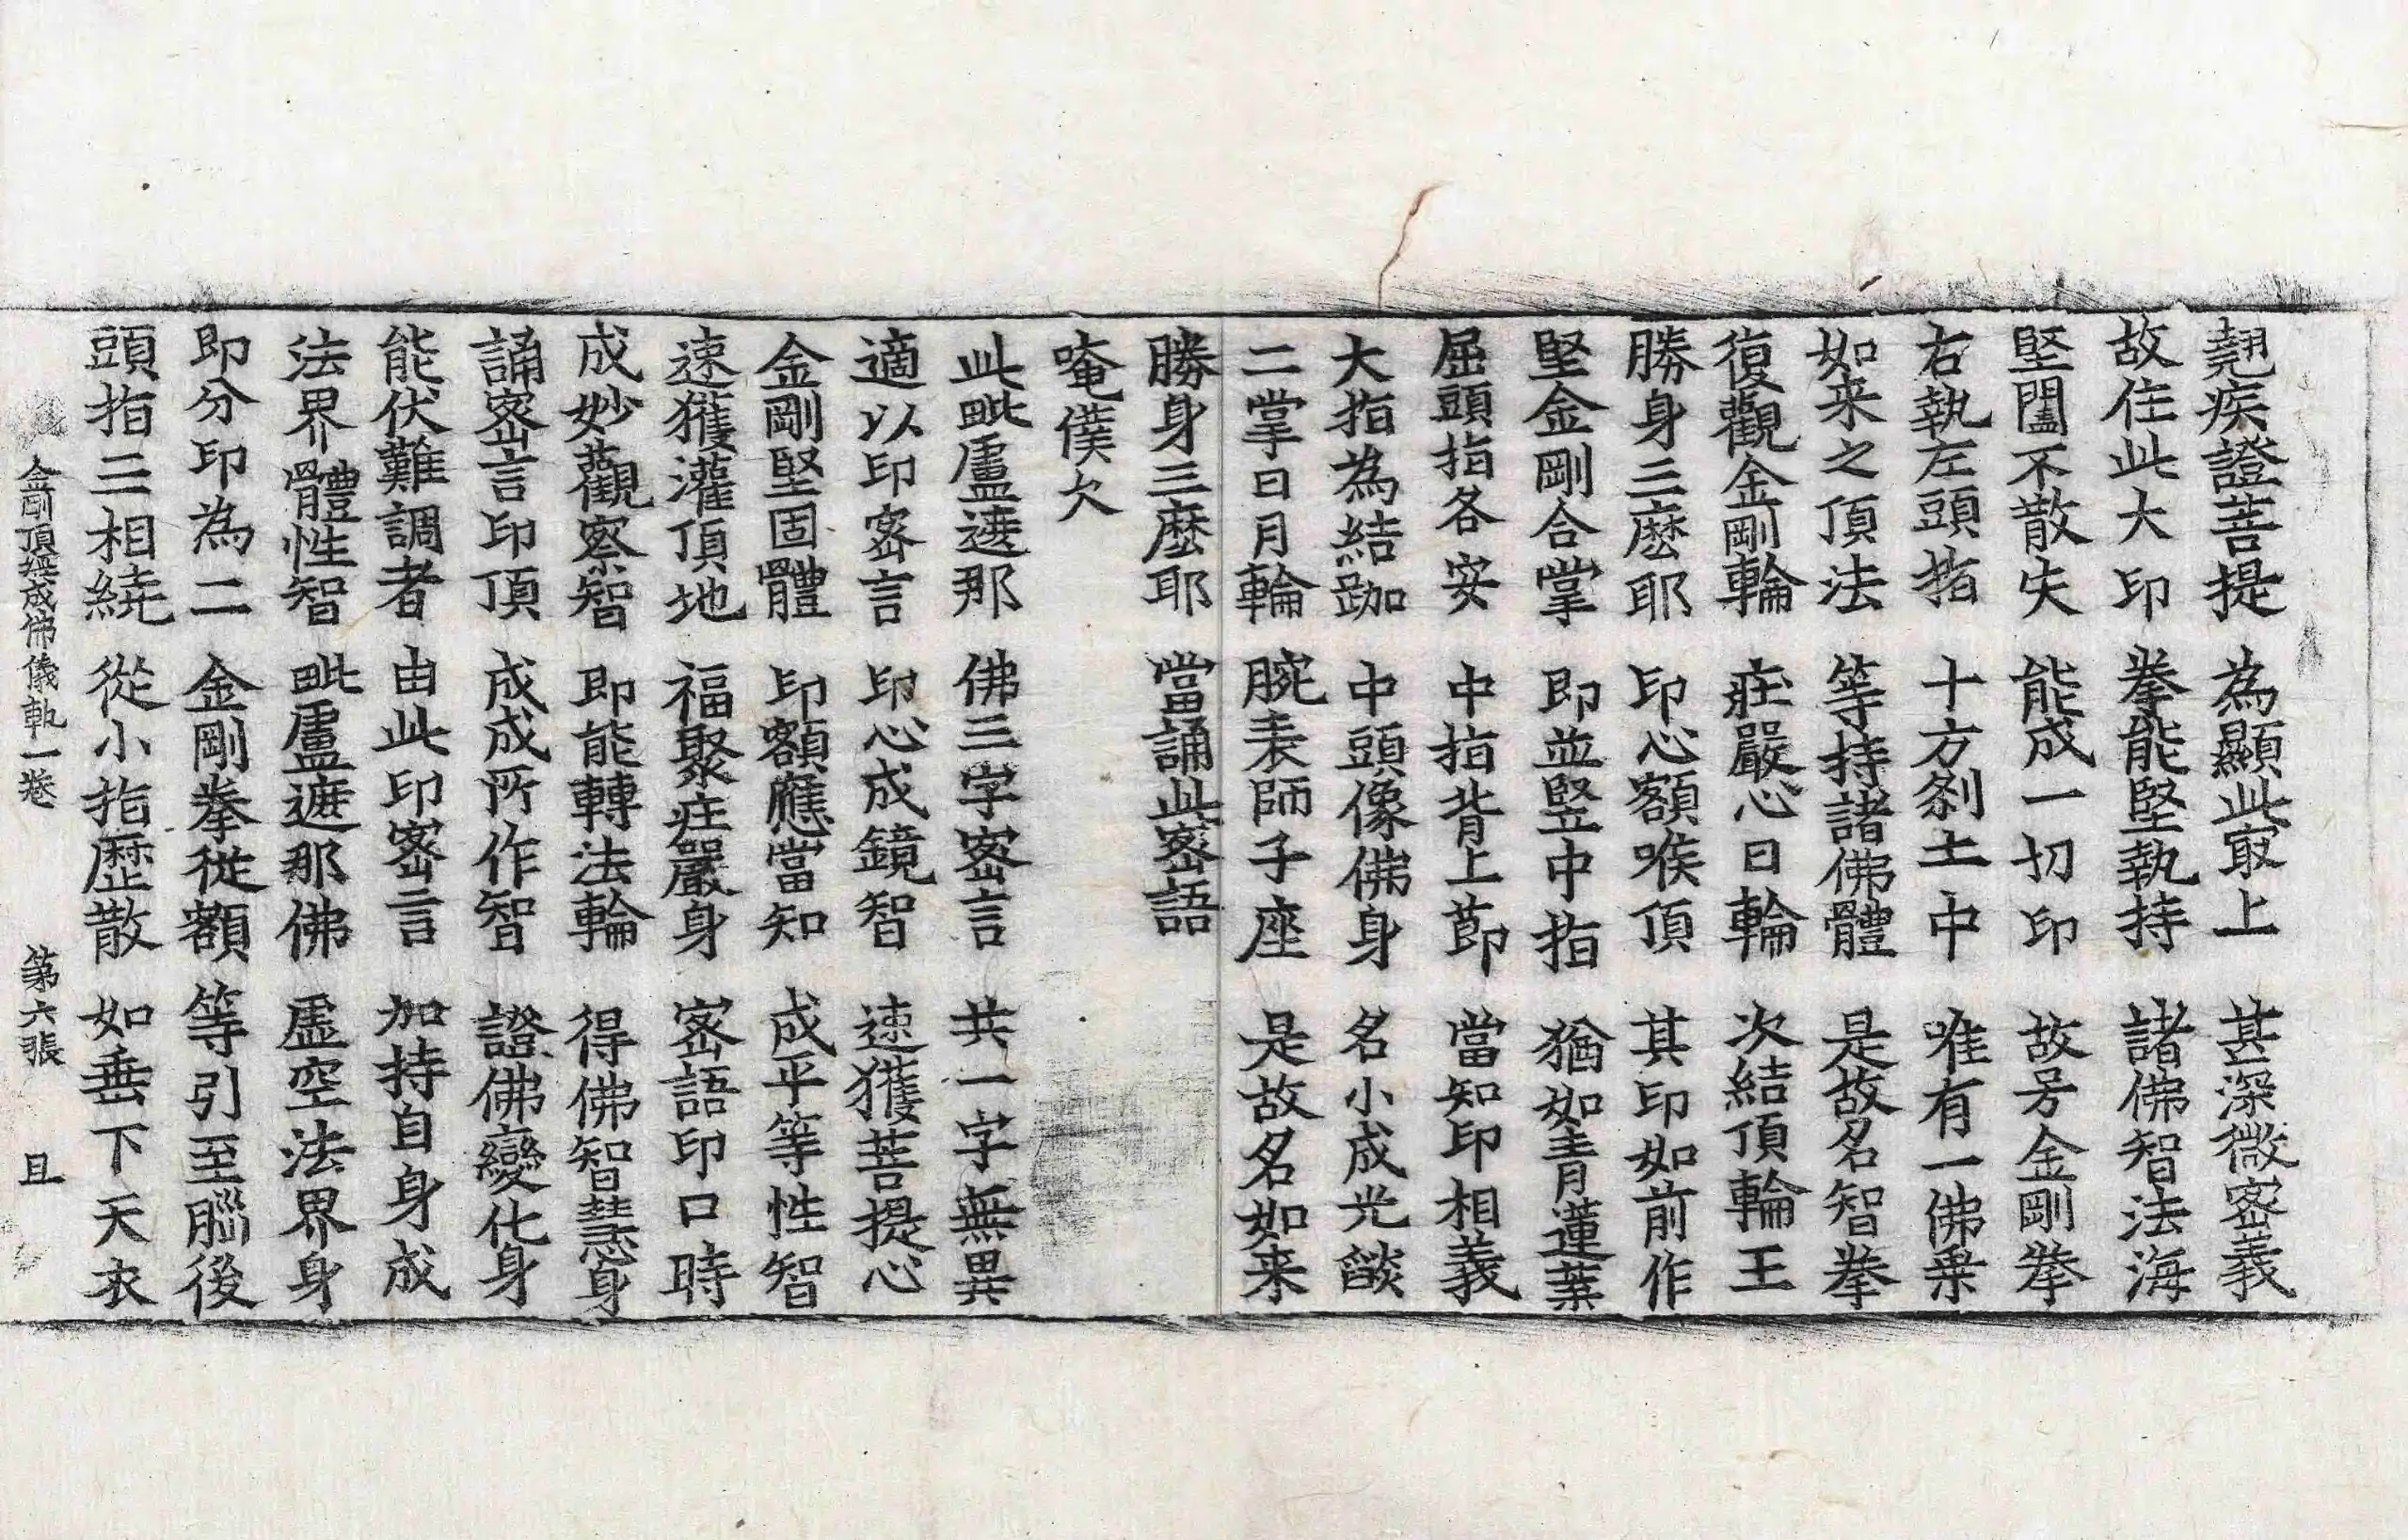 翹疾證菩提 為顯此㝡上 甚深微宻義
故住此大印 拳能堅執持 諸佛智法海
堅闔不散失 能成一切印 故号金剛拳
右執左頭指 十方刹土中 唯有一佛乗
如来之頂法 等持諸佛體 是故名智拳
復觀金剛輪 莊嚴心日輪 次結頂輪王
勝身三麽耶 印心額喉頂 其印如前作
堅金剛合掌 即並竪中指 猶如青蓮葉
屈頭指各安 中指背上節 當知印相義
大指為結跏 中頭像佛身 名小成光燄
二掌日月輪 腕表師子座 是故名如来
勝身三麽耶 當誦此宻語
唵僕欠
此毗盧遮那 佛三字宻言 共一字無異
適以印宻言 印心成鏡智 速獲菩提心
金剛堅固體 印額應當知 成平等性智
速獲灌頂地 福聚莊嚴身 宻語印口時
成妙觀察智 即能轉法輪 得佛智慧身
誦宻言印頂 成成所作智 證佛變化身
能伏難調者 由此印宻言 加持自身成
法界體性智 毗盧遮那佛 虚空法界身
即分印為二 金剛拳從額 等引至腦後
頭指三相繞 從小指歷散 如垂下天衣
金剛頂經成佛儀軌一卷 第六張 且